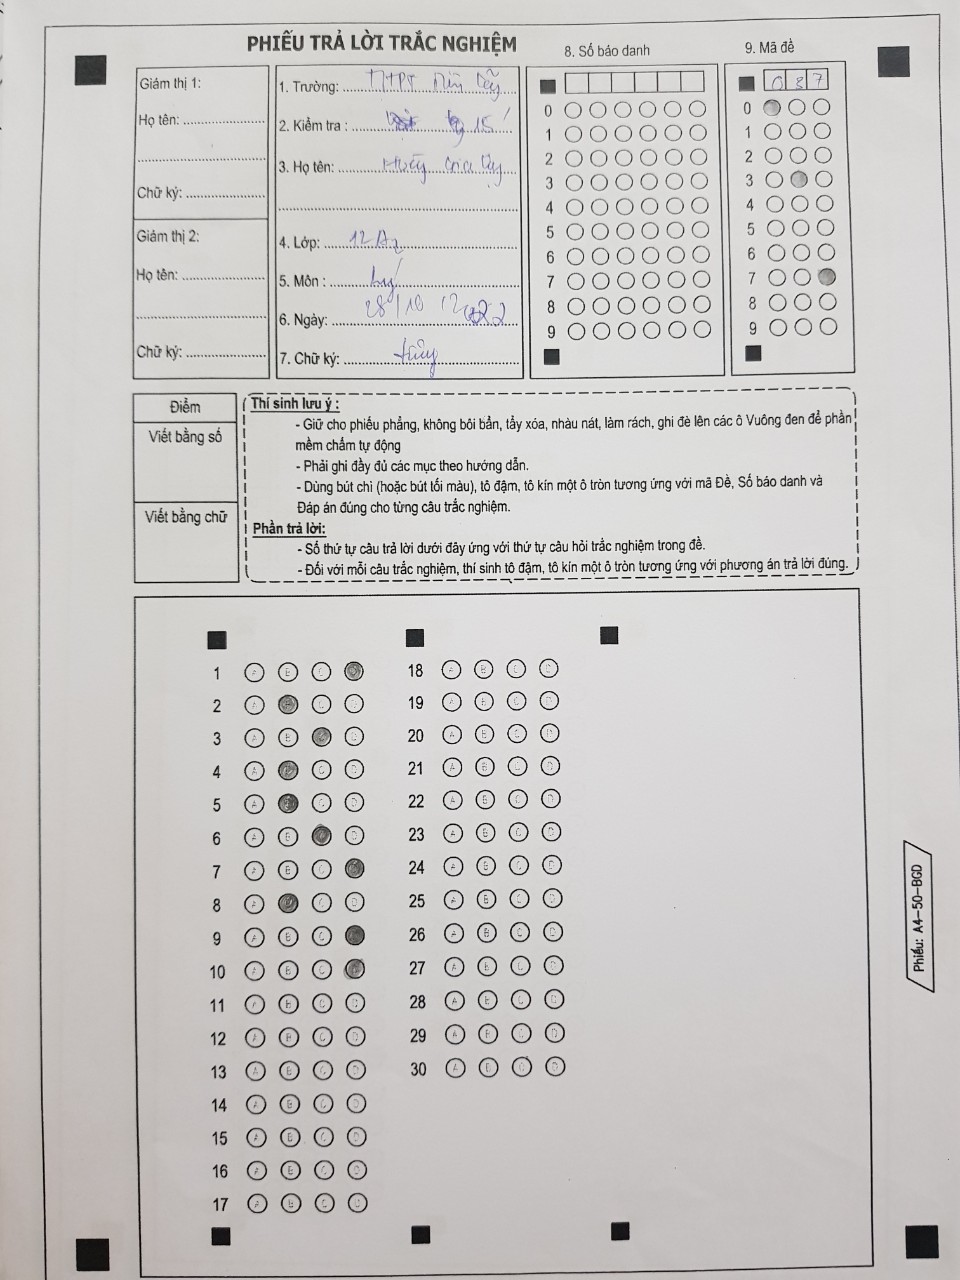 PHIẾU TRẢ LỜI TRẮC NGHIỆM
Giám thị 1:
Họ tên:
Chữ ký:
Giám thị 2:
Họ tên:
Chữ ký:
1. Trường: TTPT
2. Kiểm tra : 15'
3. Họ tên:
4. Lớp: 12A2
5. Môn : Lý
6. Ngày: 28/10/2022
7. Chữ ký:
8. Số báo danh
0
1
2
3
4
5
6
7
8
9
9. Mã đề
037
0
1
2
3
4
5
6
7
8
9
Điểm
Viết bằng số
Viết bằng chữ
Thí sinh lưu ý :
- Giữ cho phiếu phẳng, không bôi bẩn, tẩy xóa, nhàu nát, làm rách, ghi đè lên các ô Vuông đen để phần
mềm chấm tự động
- Phải ghi đầy đủ các mục theo hướng dẫn.
- Dùng bút chì (hoặc bút tối màu), tô đậm, tô kín một ô tròn tương ứng với mã Đề, Số báo danh và
Đáp án đúng cho từng câu trắc nghiệm.
Phần trả lời:
- Số thứ tự câu trả lời dưới đây ứng với thứ tự câu hỏi trắc nghiệm trong đề.
- Đối với mỗi câu trắc nghiệm, thí sinh tô đậm, tô kín một ô tròn tương ứng với phương án trả lời đúng.
1 A B C
2 A C D
3 A B D
4 A C D
5 A C D
6 A B D
7 A B C
8 A C D
9 A B C
10 A B C
11 A B C D
12 A B C D
13 A B C D
14 A B C D
15 A B C D
16 A B C D
17 A B C D
18 A B C D
19 A B C D
20 A B C D
21 A B C D
22 A B C D
23 A B C D
24 A B C D
25 A B C D
26 A B C D
27 A B C D
28 A B C D
29 A B C D
30 A B C D
Phiếu: A4-50-BGD